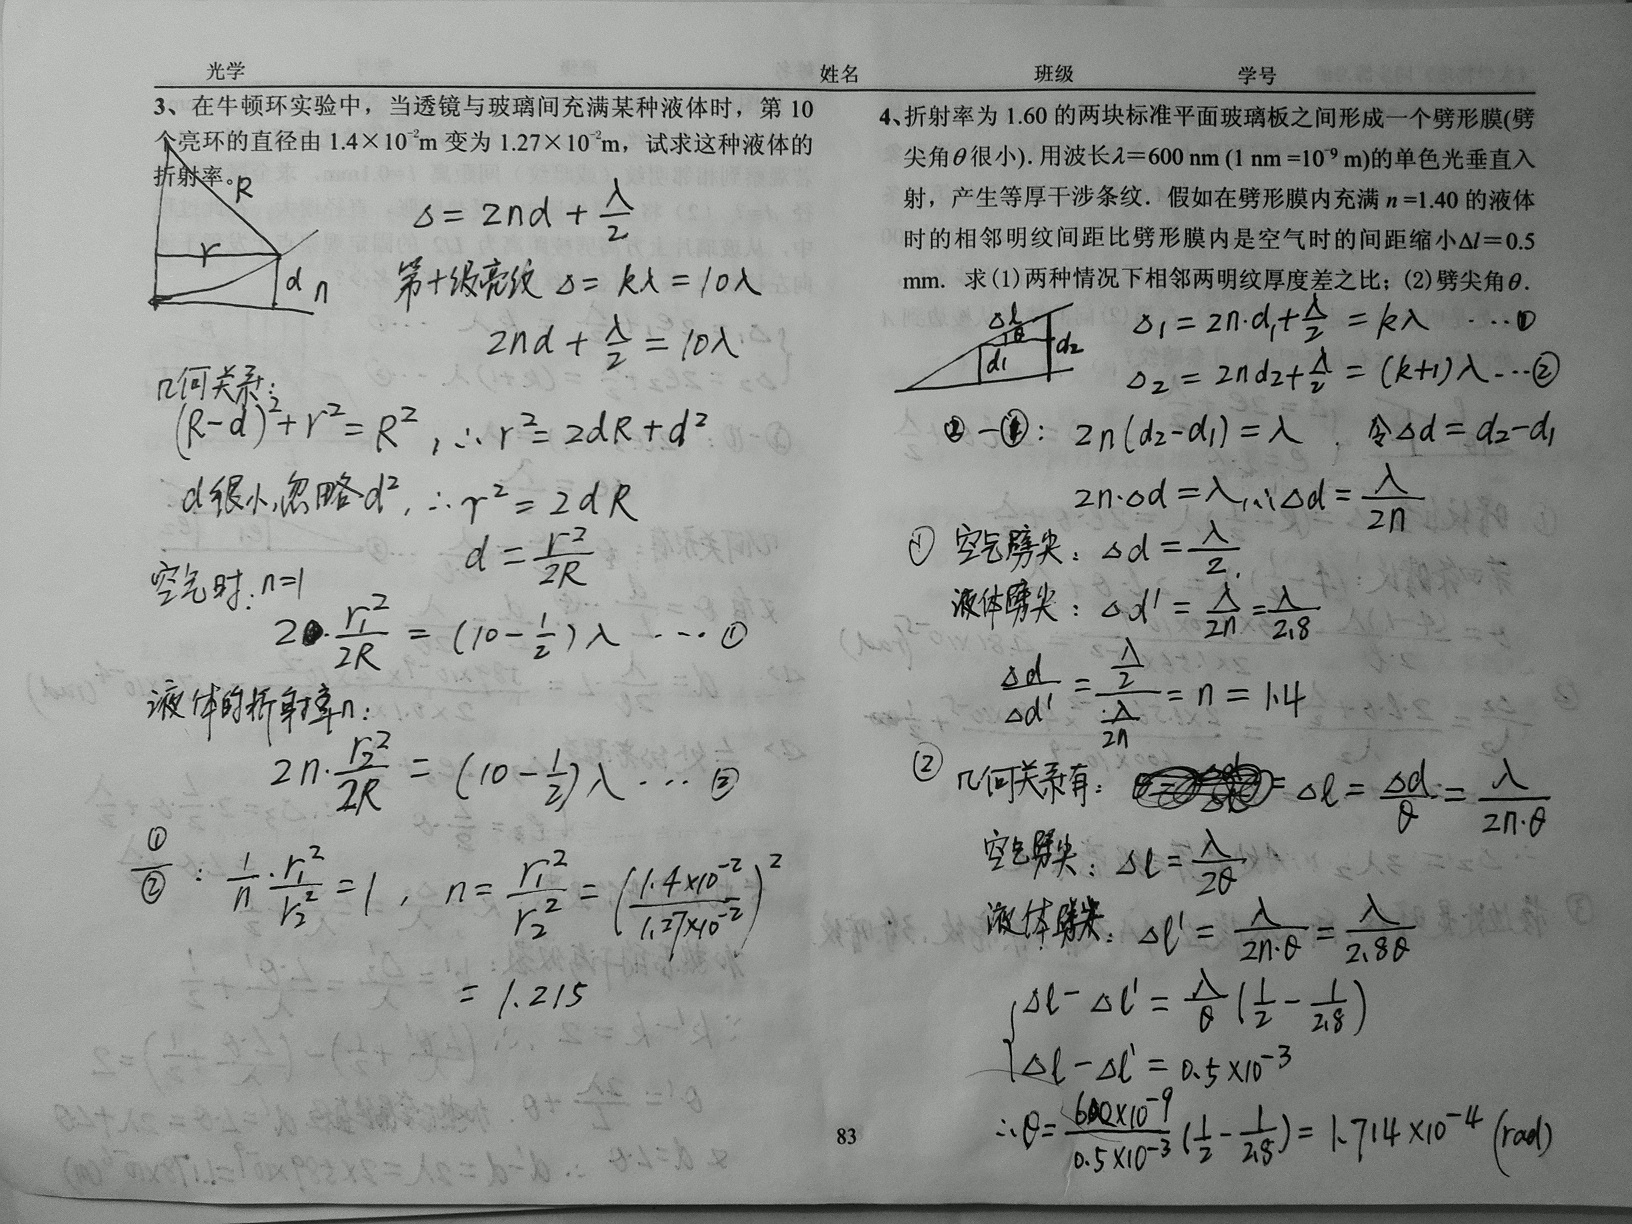 光学 姓名 班级 学号
3、在牛顿环实验中，当透镜与玻璃间充满某种液体时，第 10
个亮环的直径由 1.4×10⁻²m 变为 1.27×10⁻²m，试求这种液体的
折射率。
R
r
d n
Δ = 2nd + λ/2
第十级亮纹 Δ = kλ = 10λ
2nd + λ/2 = 10λ
几何关系：
(R-d)² + r² = R² , ∴ r² = 2dR + d²
d很小,忽略d², ∴ r² = 2dR
d = r²/2R
空气时: n=1
2·r₁²/2R = (10 - 1/2)λ ···· ①
液体的折射率n：
2n·r₂²/2R = (10 - 1/2)λ ···· ②
①/② : 1/n · r₁²/r₂² = 1 , n = r₁²/r₂² = (1.4×10⁻²/1.27×10⁻²)²
= 1.215
4、折射率为 1.60 的两块标准平面玻璃板之间形成一个劈形膜(劈
尖角θ很小). 用波长λ=600 nm (1 nm =10⁻⁹ m)的单色光垂直入
射，产生等厚干涉条纹．假如在劈形膜内充满 n =1.40 的液体
时的相邻明纹间距比劈形膜内是空气时的间距缩小Δl＝0.5
mm. 求(1)两种情况下相邻两明纹厚度差之比；(2)劈尖角θ.
Δl
θ
d₁ d₂
Δ₁ = 2n·d₁ + λ/2 = kλ ···· ①
Δ₂ = 2nd₂ + λ/2 = (k+1)λ ···②
② - ①: 2n(d₂-d₁) = λ . 令Δd = d₂-d₁
2n·Δd = λ, ∴ Δd = λ/2n
① 空气劈尖：Δd = λ/2.
液体劈尖：Δd' = λ/2n = λ/2.8
Δd/Δd' = (λ/2)/(λ/2n) = n = 1.4
② 几何关系有： = Δl = Δd/θ = λ/2n·θ
空气劈尖：Δl = λ/2θ
液体劈尖：Δl' = λ/2n·θ = λ/2.8θ
Δl - Δl' = λ/θ (1/2 - 1/2.8)
Δl - Δl' = 0.5×10⁻³
∴ θ = 600×10⁻⁹/0.5×10⁻³ (1/2 - 1/2.8) = 1.714×10⁻⁴ (rad)
83